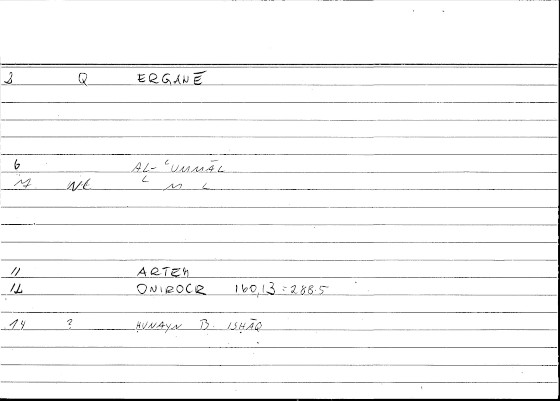 3 Q ERGANĒ
6 AL-ʿUMMĀL
M NE L M L
11 ARTEM
12 ONIROCR 160,13=288.5
14 ? ḤUNAYN B. ISḤĀQ